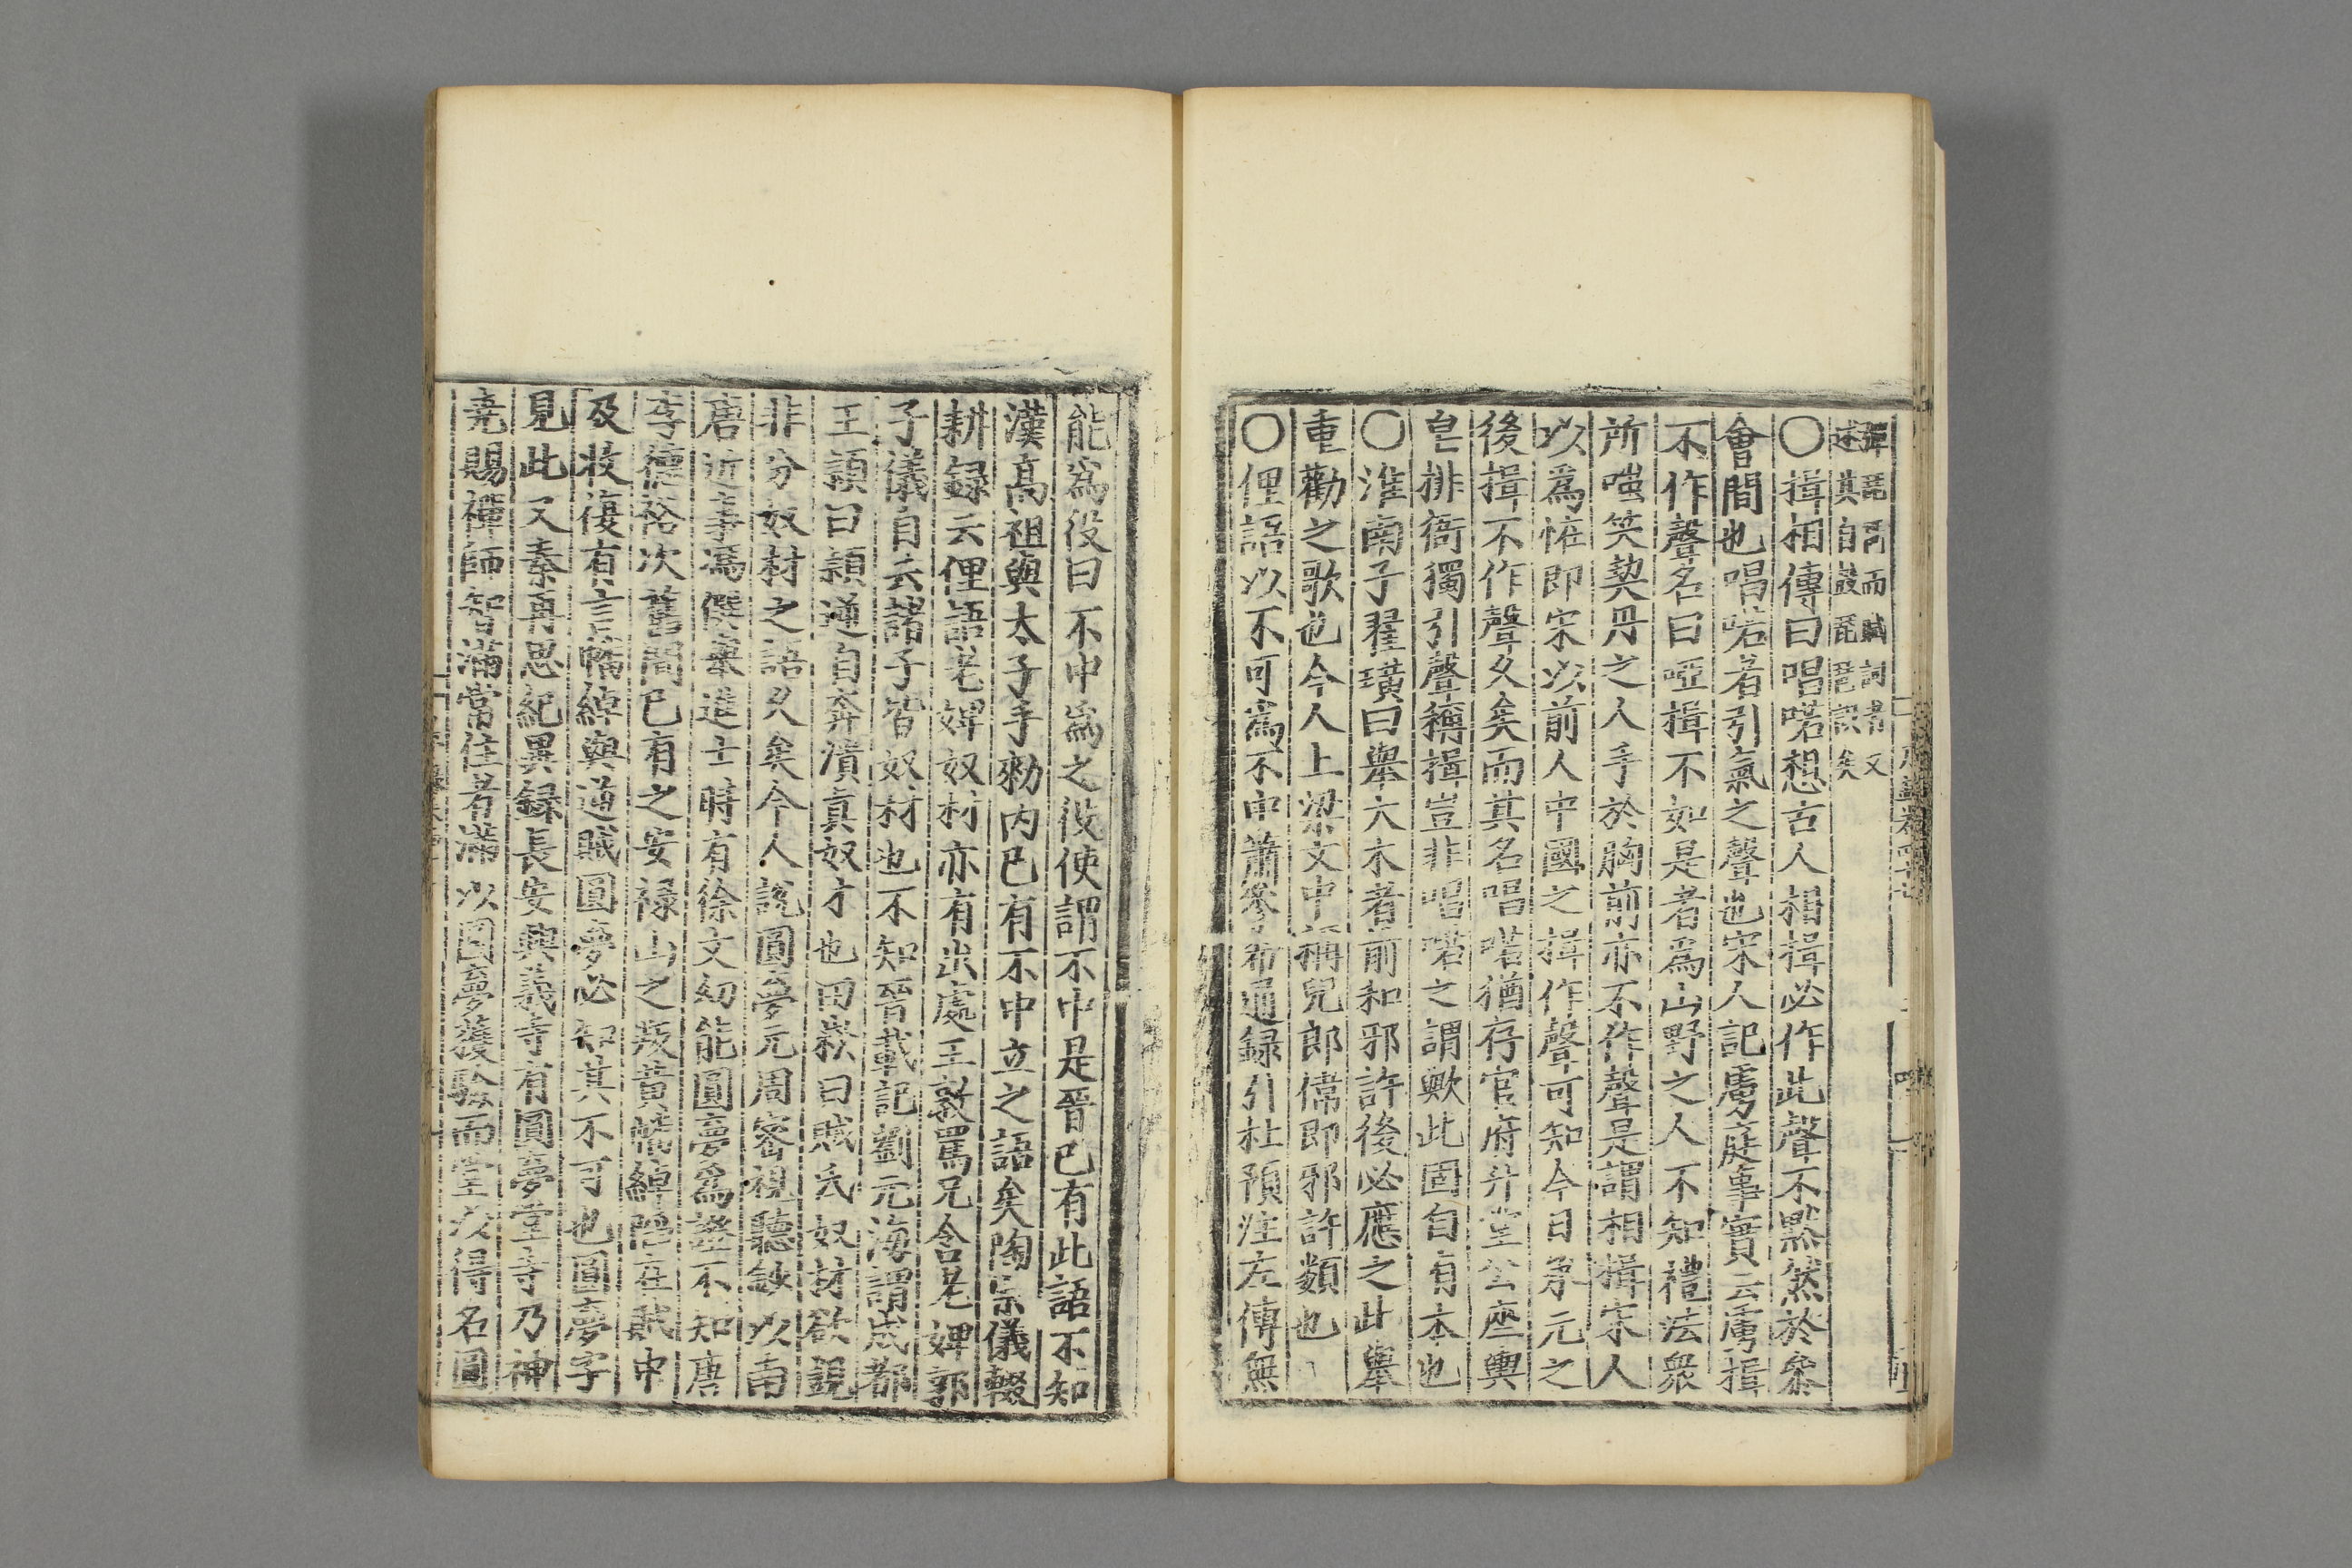 彈琵琶而賦詞者又
述其自鼓琵琶誤矣
〇揖相傳曰唱喏想古人相揖必作此聲不黙然於參
會間也唱喏者引氣之聲也宋人記虜庭事實云虜揖
不作聲名曰啞揖不如是者爲山野之人不知禮法衆
所嗤笑契丹之人手於胸前亦不作聲是謂相揖宋人
以爲怪即宋以前人中國之揖作聲可知今日承元之
後揖不作聲久矣而其名唱喏猶存官府升堂公座輿
皂排衙獨引聲穪揖豈非唱喏之謂歟此固自有本也
〇淮南子翟璜曰舉大木者前和邪許後必應之此舉
重勸之歌也今人上梁文中稱兒郎偉即邪許類也
〇俚語以不可爲不中蕭參希通録引杜預注左傳無
能爲役曰不中爲之役使謂不中是晉已有此語不知
漢髙祖與太子手勑内已有不中立之語矣陶宗儀輟
耕録云俚語老婢奴材亦有出處王敦罵兄含老婢郭
子儀自云諸子皆奴材也不知晉載記劉元海謂成都
王頴曰頴遁自奔潰真奴才也田崧曰賊氏奴材欲覬
非分奴材之語久矣今人說圓夢元周密視聽鈔以南
唐近事馮僎舉進士時有徐文幼能圓夢爲證不知唐
李德裕次舊聞已有之安禄山之叛黄幡綽陷在賊中
及收復有言幡綽與逆賊圓夢必知其不可也圓夢字
見此又秦再思紀異録長安興義寺有圓夢堂寺乃神
堯賜禪師智滿常住者滿以圓夢獲驗而堂以得名圓